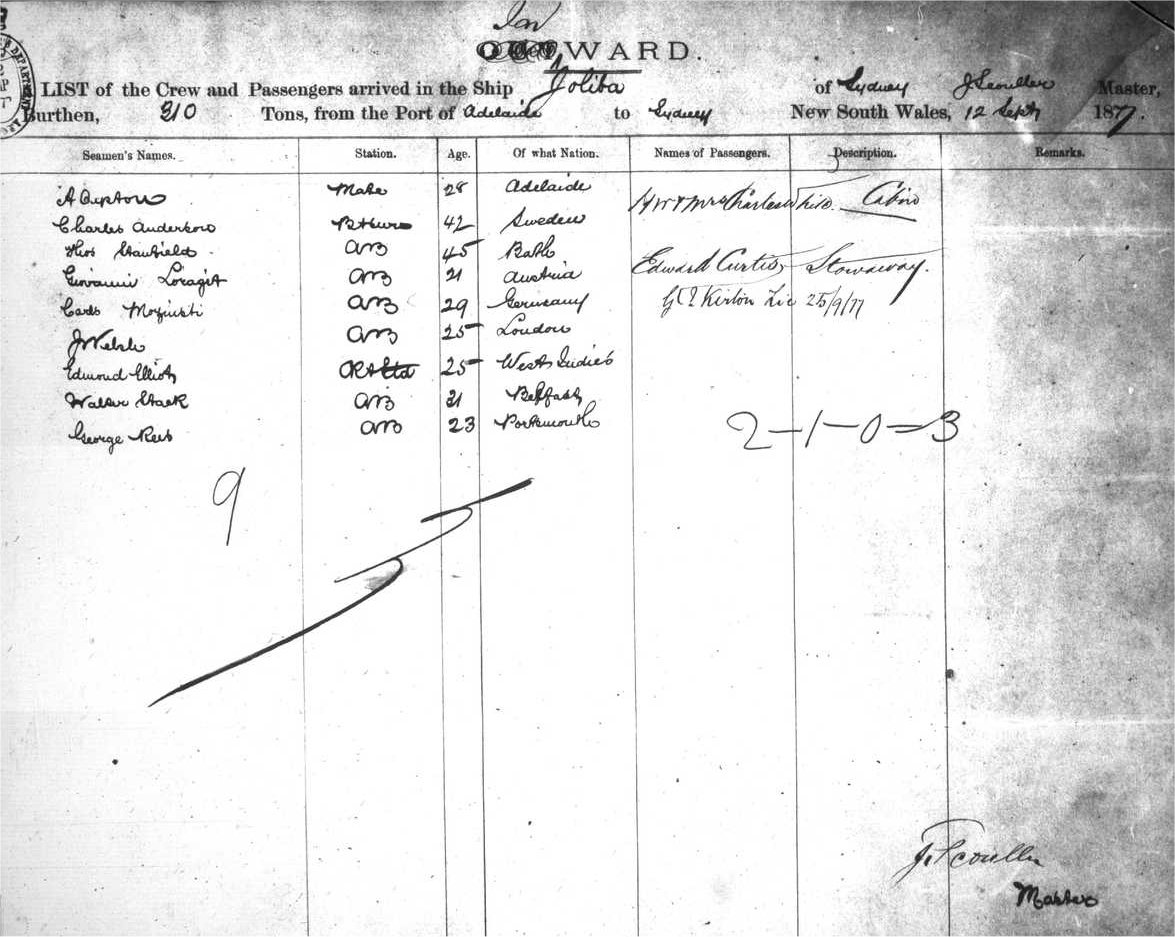 In
WARD.
LIST of the Crew and Passengers arrived in the Ship Joliba of Sydney J Scouller Master,
Burthen, 310 Tons, from the Port of Adelaide to Sydney New South Wales, 12 Sept 1877.
Seamen's Names. Station. Age. Of what Nation. Names of Passengers. Description. Remarks.
A Mate 28 Adelaide Mr & Mrs Charles Cabin
Charles Anderson 42 Sweden
Thos Stanfield AB 45 Bath Edward Curtis, Stowaway.
Giovanni AB 21 Austria
Carls AB 29 Germany Kirton 25/9/77
J Welsh AB 25 London
Edmond Elliot 25 West Indies
Walter Stark AB 21 Belfast
George Rees AB 23 Portsmouth
2-1-0=3
9
J. Scouller
Master